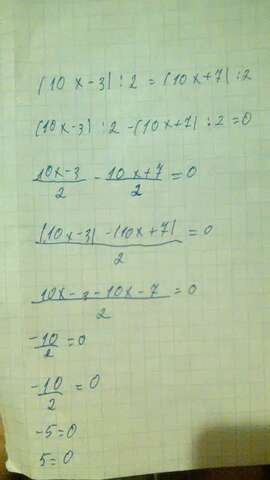 (10x-3):2=(10x+7):2
(10x-3):2-(10x+7):2=0
10x-3/2 - 10x+7/2 =0
(10x-3)-(10x+7)/2 =0
10x-3-10x-7/2 =0
-10/2=0
-10/2 =0
-5=0
5=0